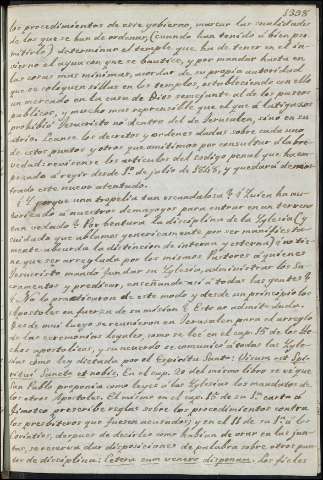 1338
los procedimientos de este gobierno, marcar las cualidades
de los que se han de ordenar, (cuando han tenido á bien per-
mitirlo) determinar el temple que ha de tener en el in-
vierno el agua con que se bautice, y por mandar hasta en
las cosas mas minimas, acordar de su propia autoridad
que se coloquen sillas en los templos, estableciendo con ello
un mercado en la casa de Dios semejante al de los paseos
publicos, y mucho mas reprensible que el que á latigazos
prohibió Jesucristo no dentro del de Jerusalen, sino en su
atrio. Leanse los decretos y ordenes dadas sobre cada uno
de estos puntos y otros que omitimos por consultar á la bre-
vedad: revisense los articulos del codigo penal que ha em-
pezado á regir desde 1º de julio de 1848, y quedará demos-
trado este nuevo atentado.
¿Y porque una tropelia tan escandalosa? ¿Quien ha au-
torizado á nuestros demagogos para entrar en un terreno
tan vedado? Por ventura la disciplina de la Iglesia (y
cuidado que ablamos genericamente por ser manifiesta-
mente absurda la distincion de interna y externa) no tie-
ne que ser arreglada por los mismos Pastores á quienes
Jesucristo mandó fundar su Iglesia, administrar los Sa-
cramentos y predicar, enseñando así á todas las gentes?
¿No lo practicaron de este modo y desde un principio los
Apostoles en fuerza de su mision? Esto es admitido.
Desde muy luego se reunieron en Jerusalen para el arreglo
de las ceremonias legales, como se lee en el cap. 15 de los He-
chos apostolicos; y su acuerdo se comunicó á todas las Igle-
sias como ley dictada por el Espiritu Santo: Visum est Spi-
ritui Sancto et nobis. En el cap. 20 del mismo libro se ve que
San Pablo proponia como leyes á las Iglesias los mandatos de
los otros Apostoles. El mismo en el cap. 5º de su 1ª carta á
Timoteo prescribe reglas sobre los procedimientos contra
los presbiteros que fuesen acusados; y en el 11 de su 1ª á los
Corintios, despues de decirles como habian de orar en las jun-
tas, se reserva dar disposiciones de palabra sobre otros pun-
tos de disciplina: Cetera cum venero disponam. Los fieles